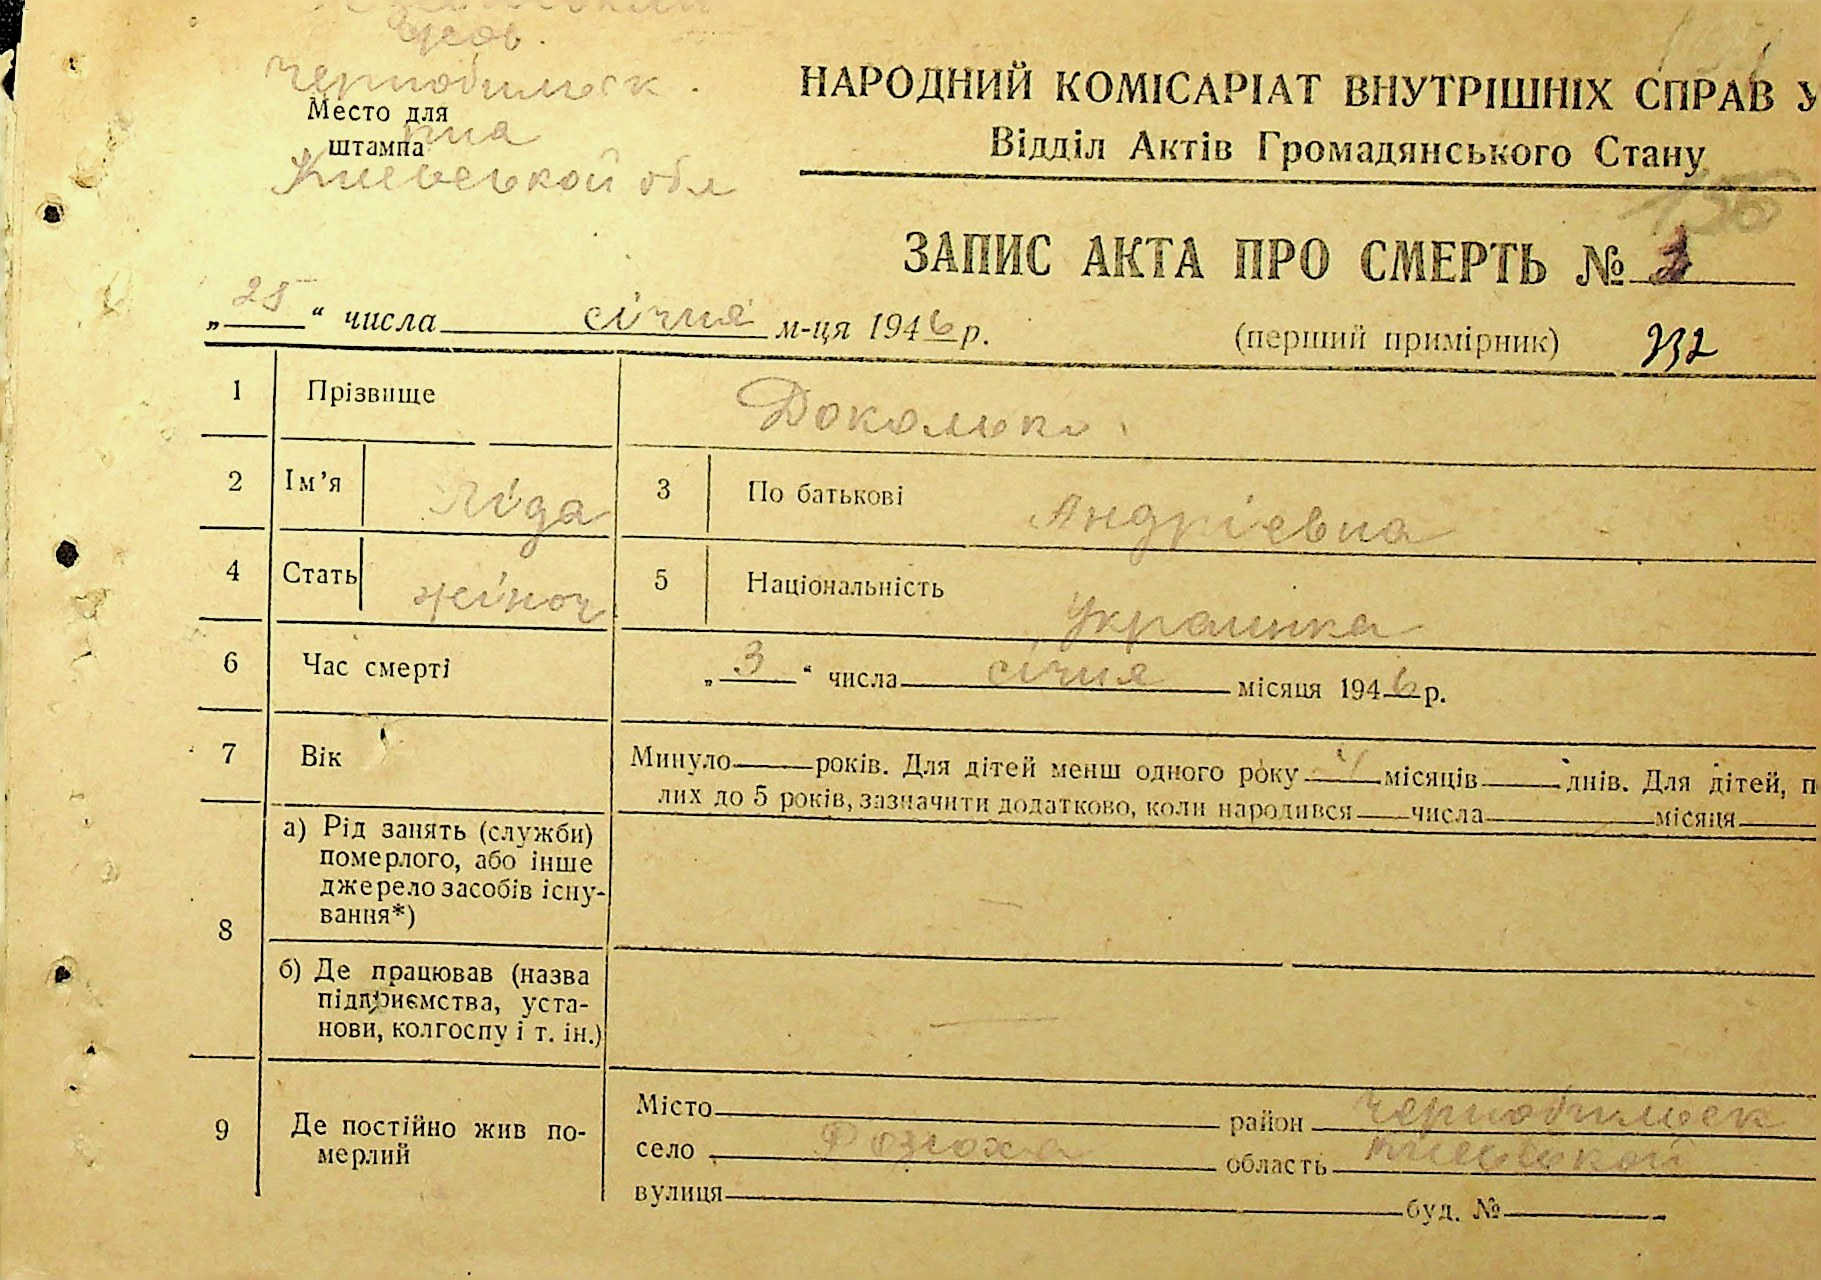 Чернобильск.
Место для
штампа
рна
Киевськой обл
НАРОДНИЙ КОМІСАРІАТ ВНУТРІШНІХ СПРАВ У
Відділ Актів Громадянського Стану
156
ЗАПИС АКТА ПРО СМЕРТЬ №
„25“ числа січня м-ця 1946 р.
(перший примірник) 232
1 Прізвище
2 Ім’я Ліда 3 По батькові Андріевна
4 Стать жіноч 5 Національність Украинка
6 Час смерті „3“ числа січня місяця 1946 р.
7 Вік Минуло років. Для дітей менш одного року 4 місяців днів. Для дітей, п
лих до 5 років, зазначити додатково, коли народився числа місяця
8 а) Рід занять (служби)
померлого, або інше
джерело засобів існу-
вання*)
б) Де працював (назва
підприємства, уста-
нови, колгоспу і т. ін.)
9 Де постійно жив по-
мерлий
Місто район Чернобильск
село Розсоха область Киевськой
вулиця буд. №